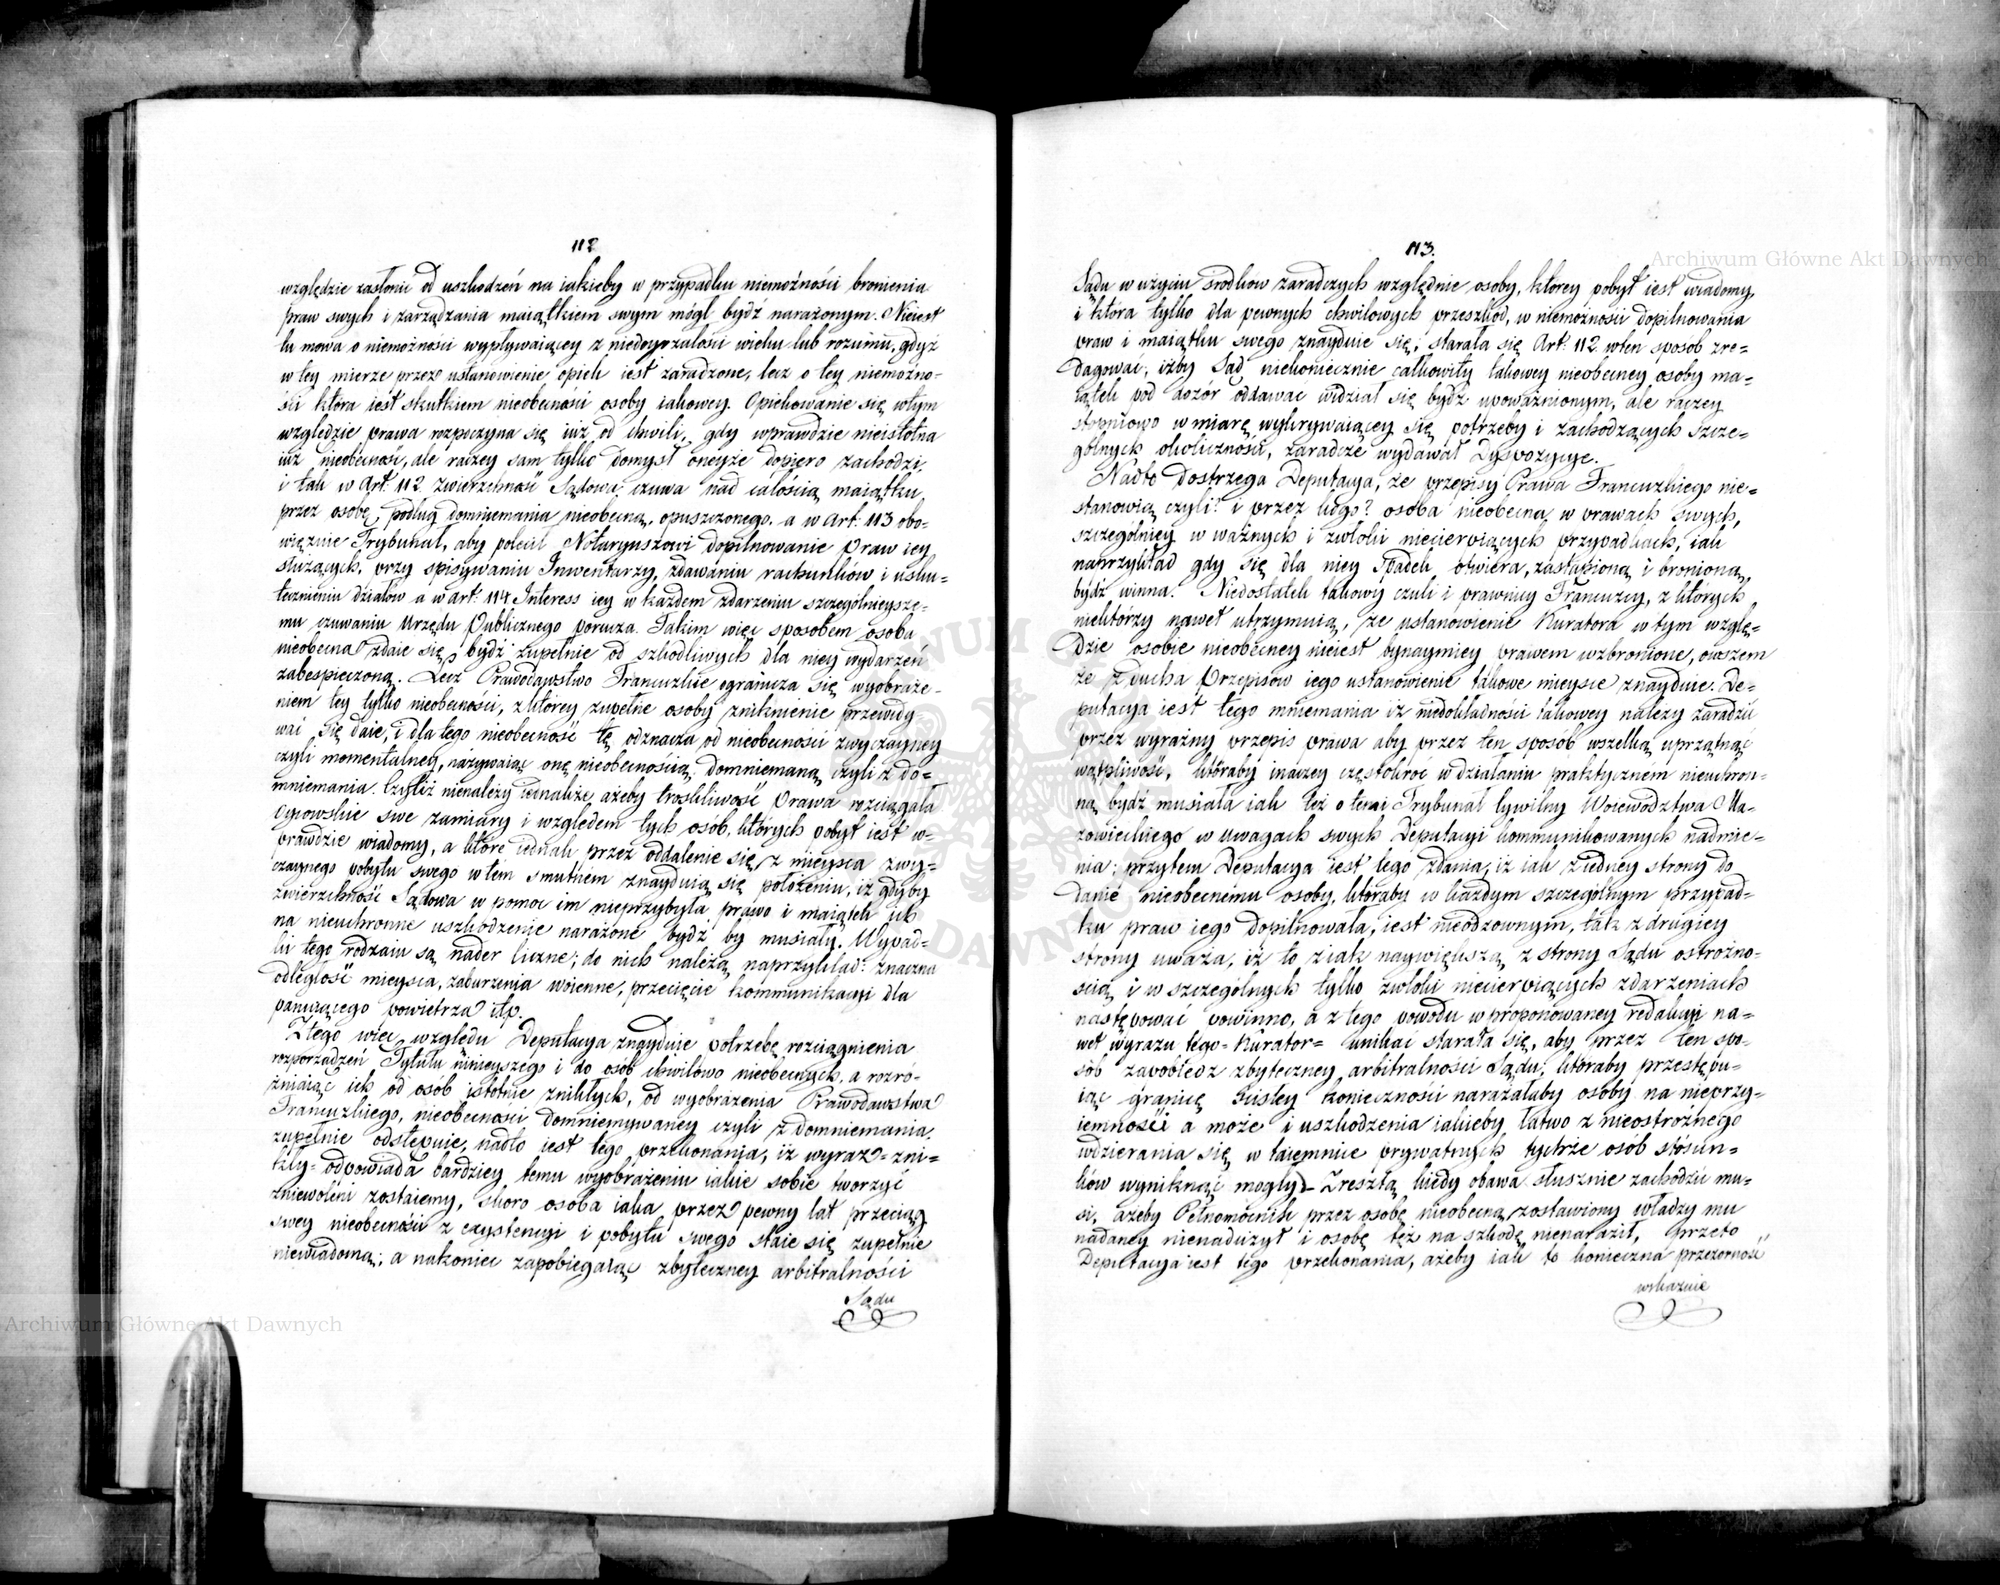 112
względzie zasłonić od uszkodzeń na iakieby w przypadku niemożności bronienia
praw swych i zarządzania maiątkiem swym mógł bydź narażonym. Nieiest
tu mowa o niemożności wypływaiącey z niedoyrzałości wieku lub rozumu, gdyż
w tey mierze przez ustanowienie opiek iest zaradzone, lecz o tey niemożno-
ści która iest skutkiem nieobecności osoby iakowey. Opiekowanie się w tym
względzie prawa rozpoczyna się iuż od chwili, gdy wprawdzie nieistotna
iuż nieobecność, ale raczey sam tylko domysł oneyże dopiero zachodzi,
i tak w Art: 112 zwierzchność Sądowa czuwa nad całością maiątku,
przez osobę, podług domniemania nieobecną, opuszczonego, a w Art: 113 obo-
więzuie Trybunał, aby polecił Notaryuszowi dopilnowanie Praw iey
służących, przy spisywaniu Inwentarzy, zdawaniu rachunków i usku-
tecznieniu działów a w art: 114 Interess iey w każdem zdarzeniu szczególnieysze-
mu czuwaniu Urzędu Publicznego porucza. Takim więc sposobem osoba
nieobecna zdaie się, bydź zupełnie od szkodliwych dla niey wydarzeń
zabespieczoną. Lecz Prawodawstwo Francuzkie ogranicza się wyobraże-
niem tey tylko nieobecności, z którey zupełne osoby zniknienie przewidy
wać się daie, i dla tego nieobecność tę odznacza od nieobecności zwyczayney
czyli momentalney, nazywaiąc onę nieobecnością domniemaną czyli z do-
mniemania. Czyliż nienależy iednakże ażeby troskliwość Prawa rozciągała
oycowskie swe zamiary i względem tych osób, których pobyt iest w-
prawdzie wiadomy, a które iednak przez oddalenie się z mieysca zwy-
czaynego pobytu swego w tém smutném znayduią się położeniu, iż gdyby
zwierzchność Sądowa w pomoc im nieprzybyła, prawo i maiątek ich
na nieuchronne uszkodzenie narażone bydź by musiały. Wypad-
ki tego rodzaiu są nader liczne; do nich należą naprzykład: znaczna
odległość mieysca, zaburzenia woienne, przecięcie kommunikacyi dla
panuiącego powietrza itp.
Z tego więc względu Deputacya znayduie potrzebę rozciągnienia
rozporządzeń Tytułu ninieyszego i do osób chwilowo nieobecnych, a rozró-
żniaiąc ich od osób istotnie znikłych, od wyobrażenia Prawodawstwa
Francuzkiego, nieobecności domniemywaney czyli z domniemania,
zupełnie odstępuie, nadto iest tego przekonania, iż wyraz= zni-
kły= odpowiada bardziey temu wyobrażeniu iakie sobie tworzyć
zniewoleni zostaiemy, skoro osoba iaka przez pewny lat przeciąg
swey nieobecności z exystencyi i pobytu swego staie się zupełnie
niewiadomą; a nakoniec zapobiegaiąc zbyteczney arbitralności
Sądu
113.
Sądu w użyciu środków zaradczych względnie osoby, którey pobyt iest wiadomy,
i która tylko dla pewnych chwilowych przeszkód, w niemożności dopilnowania
praw i maiątku swego znayduie się; starała się Art: 112 w ten sposób zre-
dagować, iżby Sąd niekoniecznie całkowity takowey nieobecney osoby ma-
iątek pod dozór oddawać widział się bydź upoważnionym, ale raczey
stopniowo w miarę wykrywaiącey się potrzeby i zachodzących szcze-
gólnych okoliczności, zaradcze wydawał Dyspozycye.
Nadto Dostrzega Deputacya, że przepisy Prawa Francuzkiego nie-
stanowią czyli? i przez kogo? osoba nieobecna w prawach swych,
szczególniey w ważnych i zwłoki niecierpiących przypadkach, iak
naprzykład gdy się dla niey Spadek otwiera, zastąpioną i bronioną
bydź winna. Niedostatek takowy czuli i prawnicy Francuzcy, z których
niektórzy nawet utrzymuią, że ustanowienie Kuratora w tym wzglę-
dzie osobie nieobecney nieiest bynaymniey prawem wzbronione, owszem
że z ducha Przepisów iego ustanowienie takowe mieysce znayduie. De-
putacya iest tego mniemania iż niedokładności takowey należy zaradzić
przez wyraźny przepis prawa aby przez ten sposób wszelką uprzątnąć
wątpliwość, któraby inaczey częstokroć w działaniu praktyczném nieuchron-
ną bydź musiała iak też o tém i Trybunał Cywilny Województwa Ma-
zowieckiego w uwagach swych Deputacyi kommunikowanych nadmie-
nia; przytem Deputacya iest tego zdania, iż iak z iedney strony do
danie nieobecnému osoby, któraby w każdym szczególnym przypad-
ku praw iego dopilnowała, iest nieodzownym, tak z drugiey
strony uważa, iż to z iak naywiększą z strony Sądu ostrożno-
ścią i w szczególnych tylko zwłoki niecierpiących zdarzeniach
następować powinno, a z tego powodu w proponowaney redakcyi na-
wet wyrazu tego= Kurator= unikać starała się, aby przez ten spo-
sób zapobiedz zbyteczney arbitralności Sądu, któraby przestępu-
iąc granicę ścisłey konieczności narażałaby osoby na nieprzy-
iemności a może i uszkodzenia iakieby łatwo z nieostróżnego
wdzierania się w taiemnice prywatnych tychże osób stósun-
ków wyniknąć mogły. Zresztą kiedy obawa słusznie zachodzić mu-
si, ażeby Pełnomocnik przez osobę nieobecną zostawiony władzy mu
nadaney nienadużył i osobę też na szkodę nienaraził, przeto
Deputacya iest tego przekonania, ażeby iak to konieczna przezorność
wskazuie
Archiwum Główne Akt Dawnych
Archiwum Główne Akt Dawnych